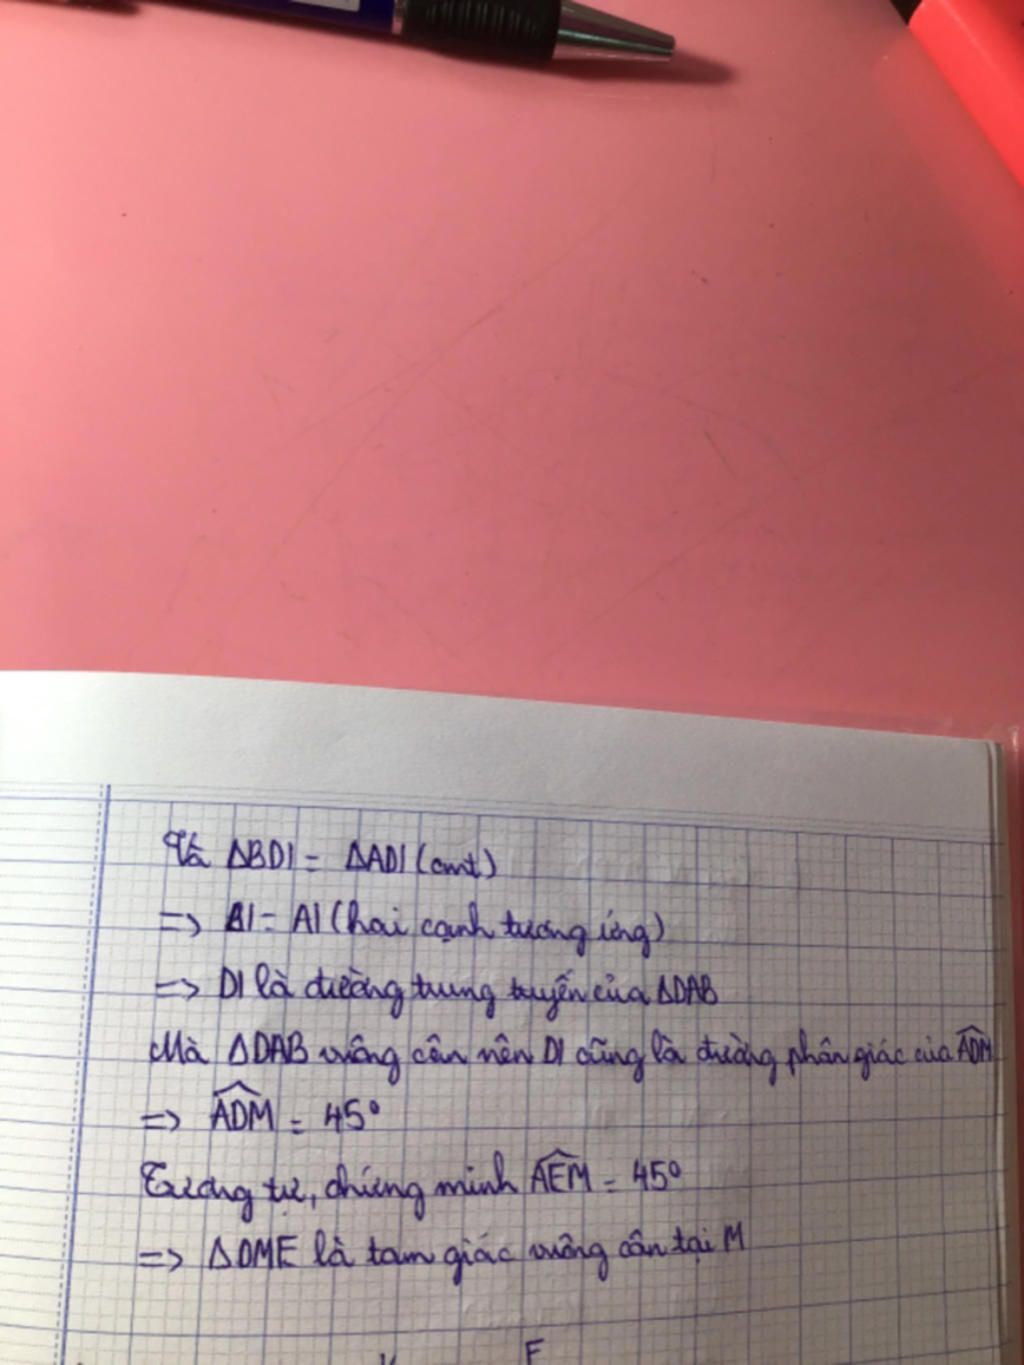 Và ΔBDI = ΔADI (cmt)
=> BI = AI (hai cạnh tương ứng)
=> DI là đường trung tuyến của ΔDAB
Mà ΔDAB vuông cân nên DI cũng là đường phân giác của ADM
=> ADM = 45°
Tương tự, chứng minh AEM = 45°
=> ΔDME là tam giác vuông cân tại M